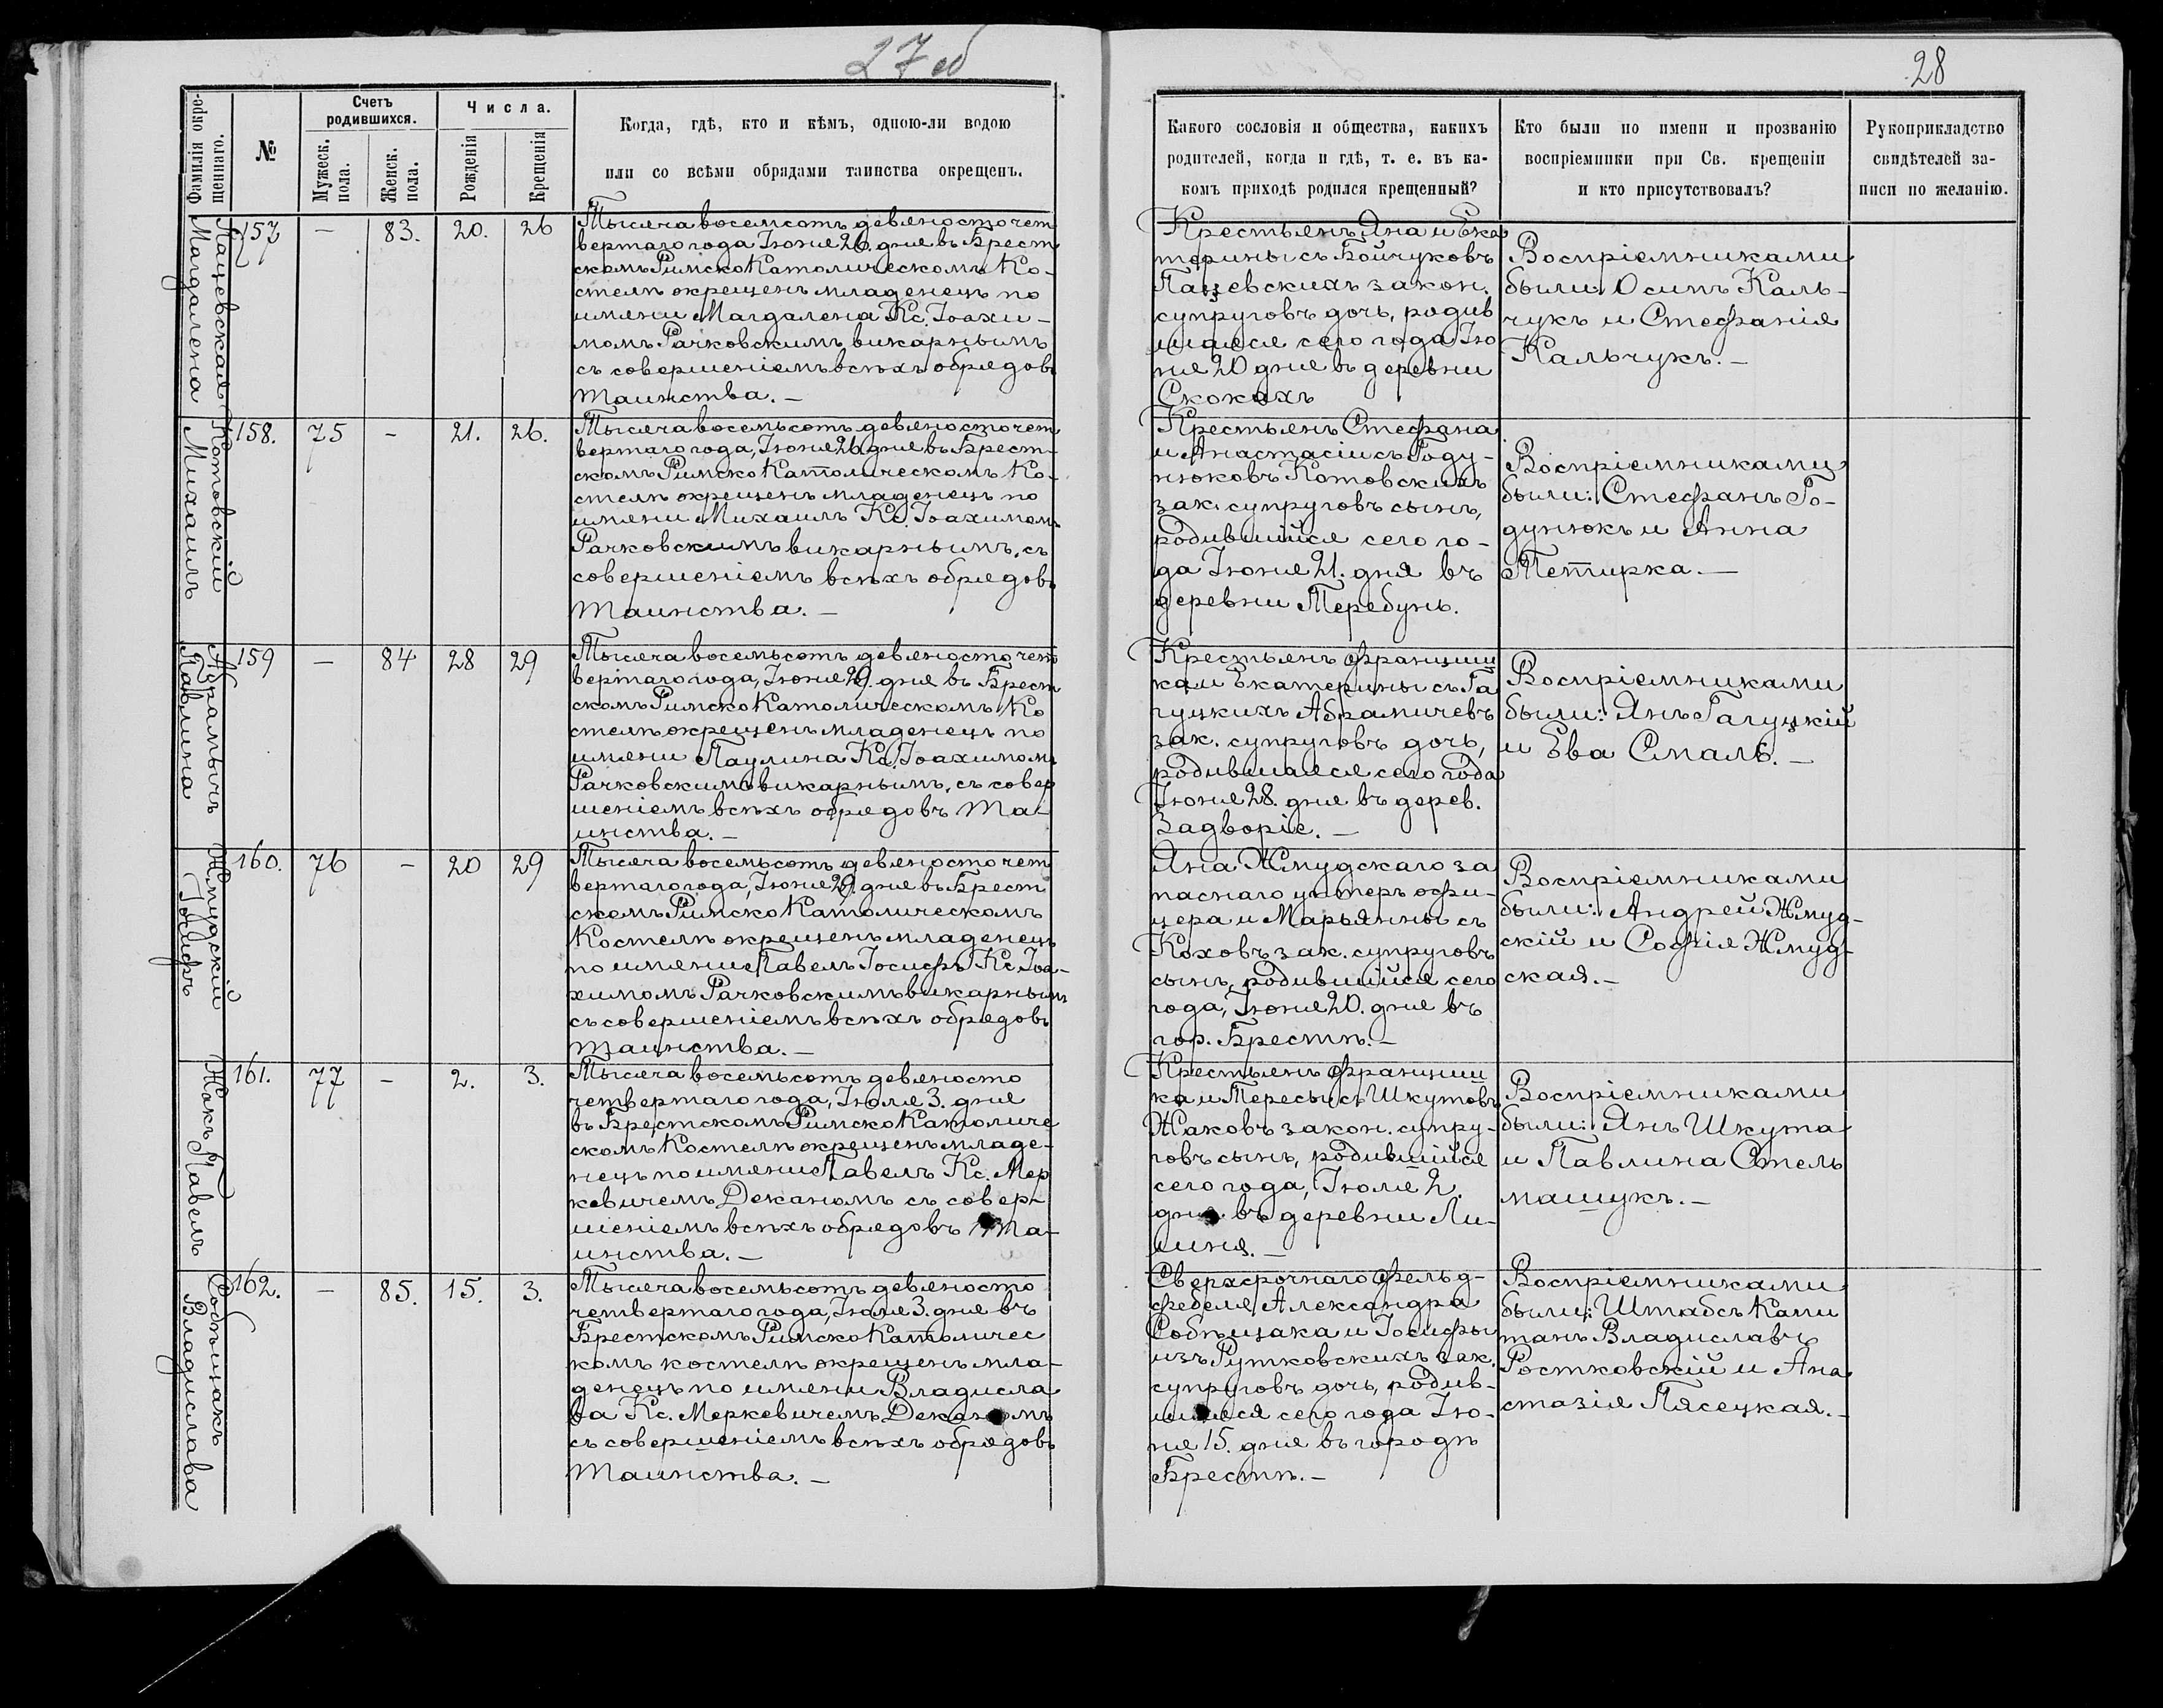 27 об
28
Фамилія окре-
щеннаго.
№
Счетъ
родившихся.
Мужеск.
пола.
Женск.
пола.
Числа.
Рожденія
Крещенія
Когда, гдѣ, кто и кѣмъ, одною-ли водою
или со всѣми обрядами таинства окрещенъ.
Какого сословія и общества, какихъ
родителей, когда и гдѣ, т. е. въ ка-
комъ приходѣ родился крещенный?
Кто были по имени и прозванію
воспріемники при Св. крещеніи
и кто присутствовалъ?
Рукоприкладство
свидѣтелей за-
писи по желанію.
Пацевская
Магдалена
157
—
83.
20.
26
Тысяча восемсотъ девяносто чет
вертаго года Іюня 26. дня въ Брест
скомъ Римско Католическомъ Ко-
стелѣ окрещенъ младенецъ по
имени Магдалена Кс. Іоахи-
момъ Рачковскимъ викарнымъ
съ совершеніемъ всѣхъ обрядовъ
Таинства. —
Крестьянъ Яна и Ека
терины съ Бойчуковъ
Пацевскихъ закон.
супруговъ дочь, родив
шаяся сего года Ію
ня 20 дня въ деревни
Скокахъ
Воспріемниками
были Осипъ Каль-
чукъ и Стефанія
Кальчукъ. —
Котовскій
Михаилъ
158.
75
-
21.
26.
Тысяча восемьсотъ девяносто чет
вертаго года, Іюня 26 дня въ Брест-
скомъ Римско Католическомъ Ко-
стелѣ окрещенъ младенецъ по
имени Михаилъ Кс. Іоахимомъ
Рачковскимъ викарнымъ, съ
совершеніемъ всѣхъ обрядовъ
Таинства. —
Крестьянъ Стефана
и Анастасіи съ Году-
нюковъ Котовскихъ
зак. супруговъ сынъ,
родившійся сего го-
да Іюня 21. дня въ
деревни Теребунь.
Воспріемниками
были: Стефанъ Го-
дунюкъ и Анна
Тетирка. —
Абрамичъ
Павлина
159
—
84
28
29
Тысяча восемьсотъ девяносто чет
вертаго года, Іюня 29. дня въ Брест
скомъ Римско Католическомъ Ко
стелѣ окрещенъ младенецъ по
имени Паулина Кс. Іоахимомъ
Рачковскимъ викарнымъ, съ совер
шеніемъ всѣхъ обрядовъ Та-
инства. —
Крестьянъ Францыш
ка и Екатерины съ Га
луцкихъ Абрамичевъ
зак. супруговъ дочь,
родившаяся сего года
Іюня 28. дня въ дерев.
Задворіе. —
Воспріемниками
были: Янъ Галуцкій
и Ева Смаль. —
Жмудскій
Іосифъ
160.
76
-
20
29
Тысяча восемьсотъ девяносто чет
вертаго года, Іюня 29. дня въ Брест
скомъ Римско Католическомъ
Костелѣ окрещенъ младенецъ
по имени Павелъ Іосифъ Кс. Іоа-
химомъ Рачковскимъ викарнымъ
съ совершеніемъ всѣхъ обрядовъ
Таинства. —
Яна Жмудскаго за
паснаго унтеръ офи-
цера и Марьянны съ
Коховъ зак. супруговъ
сынъ, родившійся сего
года, Іюня 20. дня въ
гор. Брестѣ. —
Воспріемниками
были: Андрей Жмуд-
скій и Софія Жмуд-
ская. —
Жакъ Павелъ
161.
77
-
2.
3.
Тысяча восемьсотъ девяносто
четвертаго года, Іюля 3. дня
въ Брестскомъ Римско Католиче
скомъ Костелѣ окрещенъ младе-
нецъ по имени Павелъ Кс. Мер
кевичемъ Деканомъ съ совер-
шеніемъ всѣхъ обрядовъ Та-
инства. —
Крестьянъ Францыш
ка и Тересы съ Шкутовъ
Жаковъ закон. супру-
говъ сынъ, родившійся
сего года, Іюля 2.
дня въ деревни Ли-
Воспріемниками
были: Янъ Шкута
и Павлина Стель
машукъ. —
Собѣщакъ
Владислава
162.
—
85.
15.
3.
Тысяча восемьсотъ девяносто
четвертаго года, Іюля 3. дня въ
Брестскомъ Римско Католичес
комъ костелѣ окрещенъ мла-
денецъ по имени Владисла
ва Кс. Меркевичемъ Деканомъ
съ совершеніемъ всѣхъ обрядовъ
Таинства. —
Сверхсрочнаго фельд-
фебеля Александра
Собѣщака и Іосифы
изъ Рутковскихъ зак.
супруговъ дочь, родив-
шаяся сего года Ію-
ня 15. дня въ городѣ
Брестѣ. —
Воспріемниками
были: Штабсъ Капи
танъ Владиславъ
Ростковскій и Ана
стазія Пясецкая. —